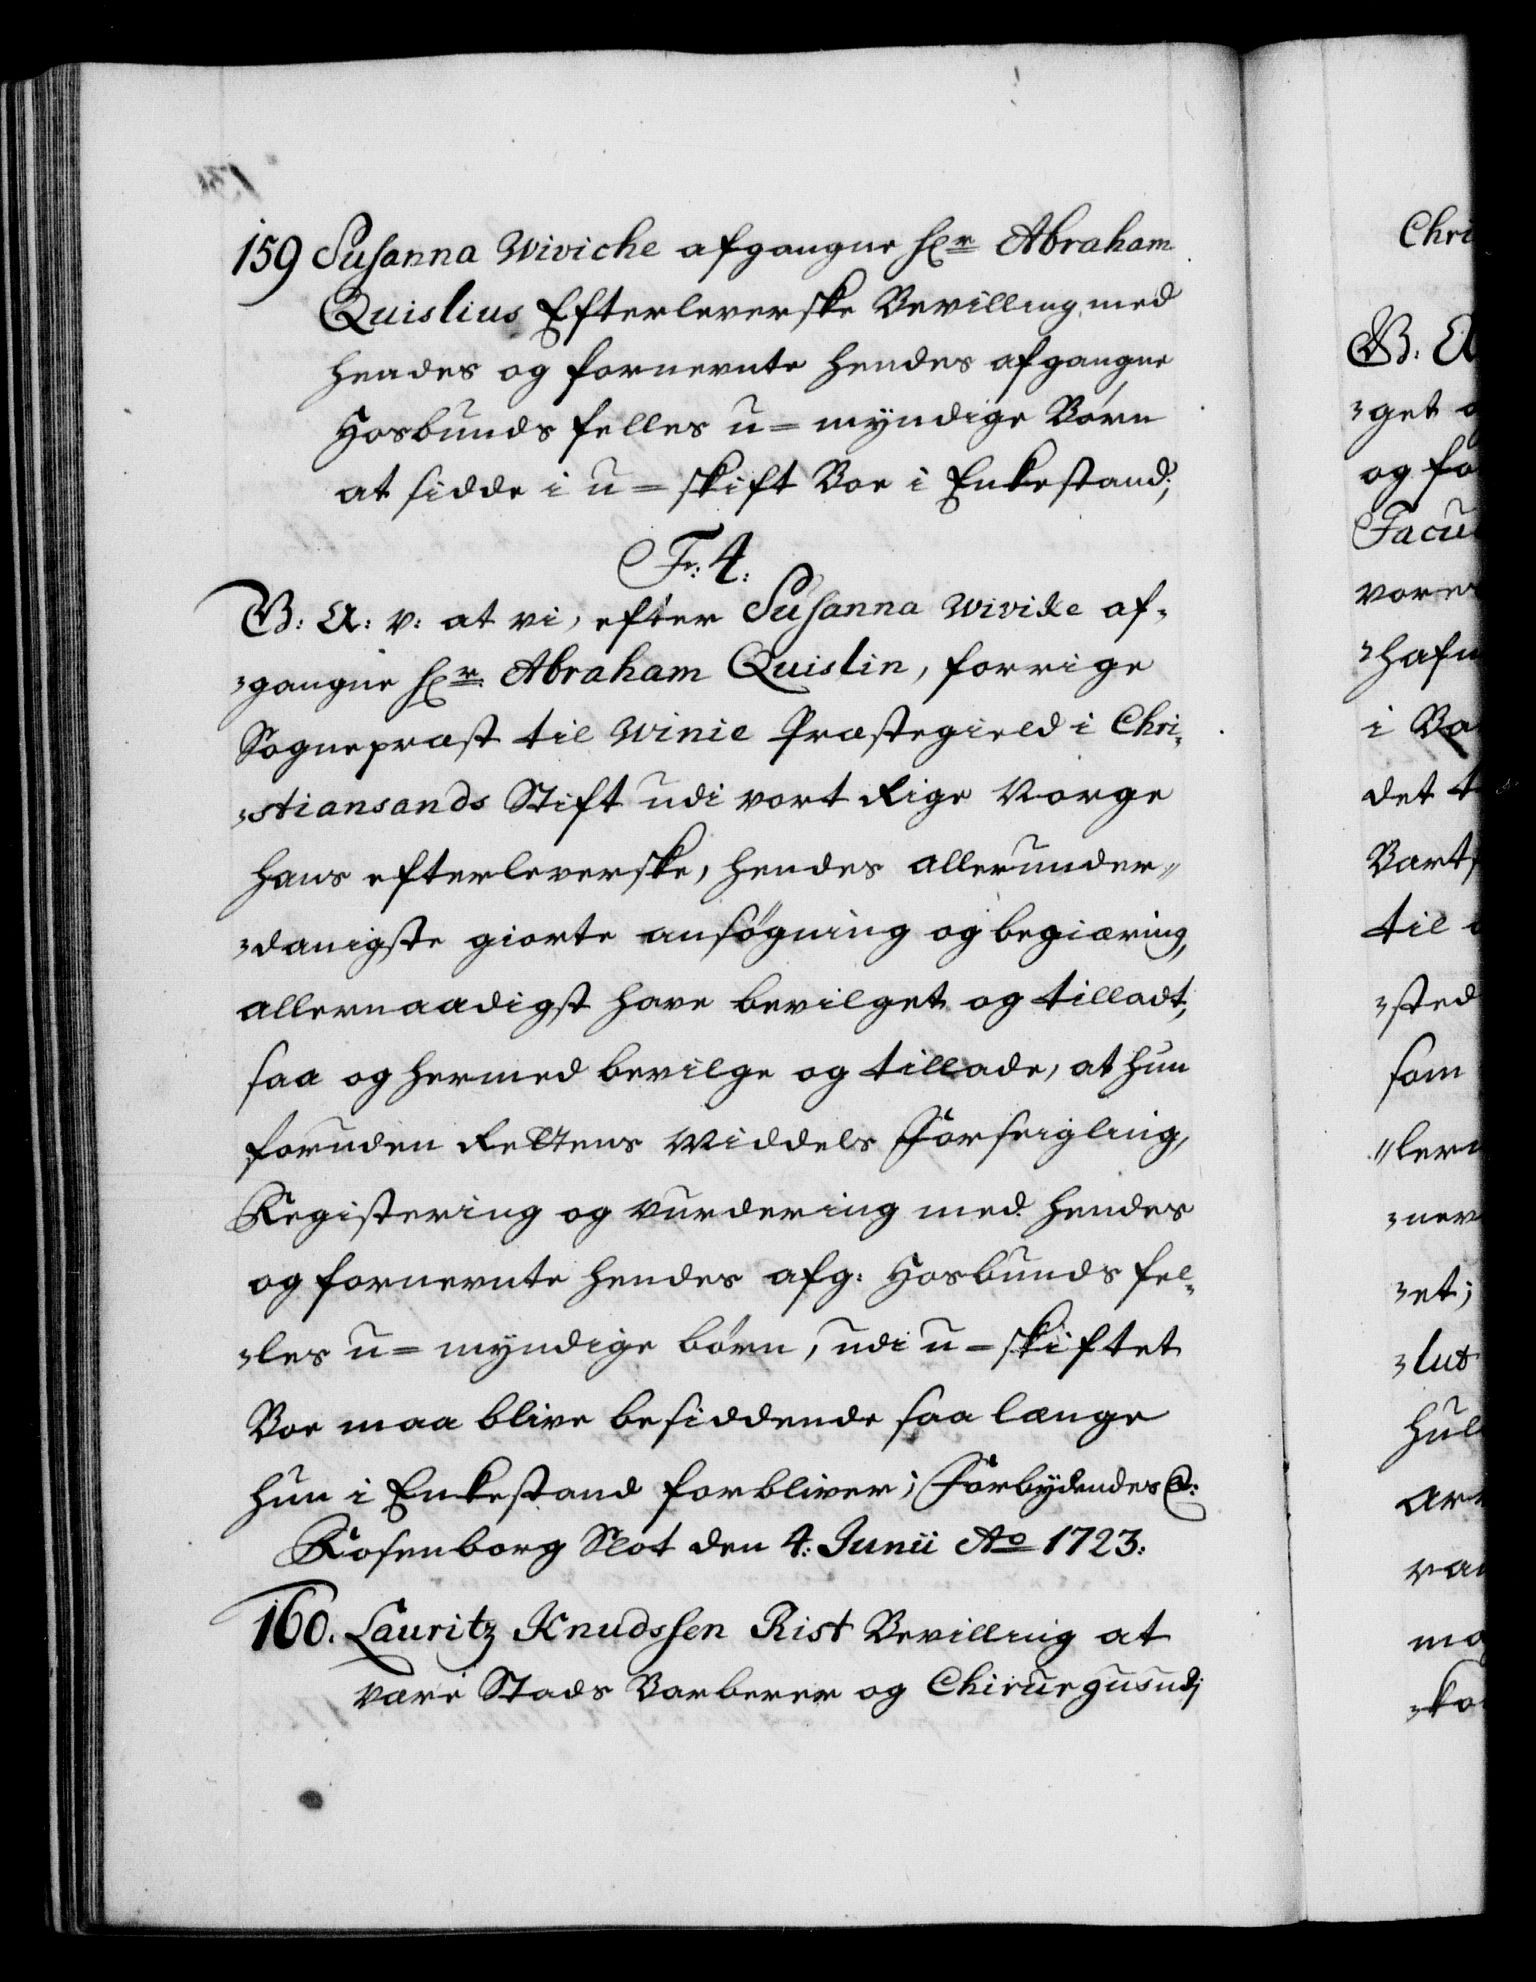 159 Susanna Wiviche afgangne Hr Abraham
Quislius Efterleverske Bevilling med
hendes og fornevnte hendes afgangne
Hosbunds felles u=myndige Børn
at sidde i u=skift Boe i Enkestand;
Fr: 4.
G: A: v: at vi, efter Susanna Wivike af-
gangne Hr Abraham Quislin, forrige
Sognepræst til Winie Præstegield i Chri-
stiansands Stift udi vort Rige Norge
hans efterleverske, hendes allerunder-
danigste giorte ansøgning og begiæring,
allernaadigst have bevilget og tilladt,
saa og hermed bevilge og tillade, at hun
foruden Rettens Middels Forseigling,
Registering og vurdering med hendes
og fornevnte hendes afg: Hosbunds fel-
les u=myndige børn, udi u-skiftet
Boe maa blive besiddende saa længe
hun i Enkestand forbliver; Forbydendes @:
Rosenborg Slot den 4: Junii Ao 1723:
160. Lauritz Knudssen Rist Bevilling at
være Stads Barberer og Chirurgus udi
Chri
G: A
get
og fo
Facu
vores
hafn
i Ba
det t
Barts
til
sted
som
ler
nev
et;
lut
hul
arv
va
ma
ko